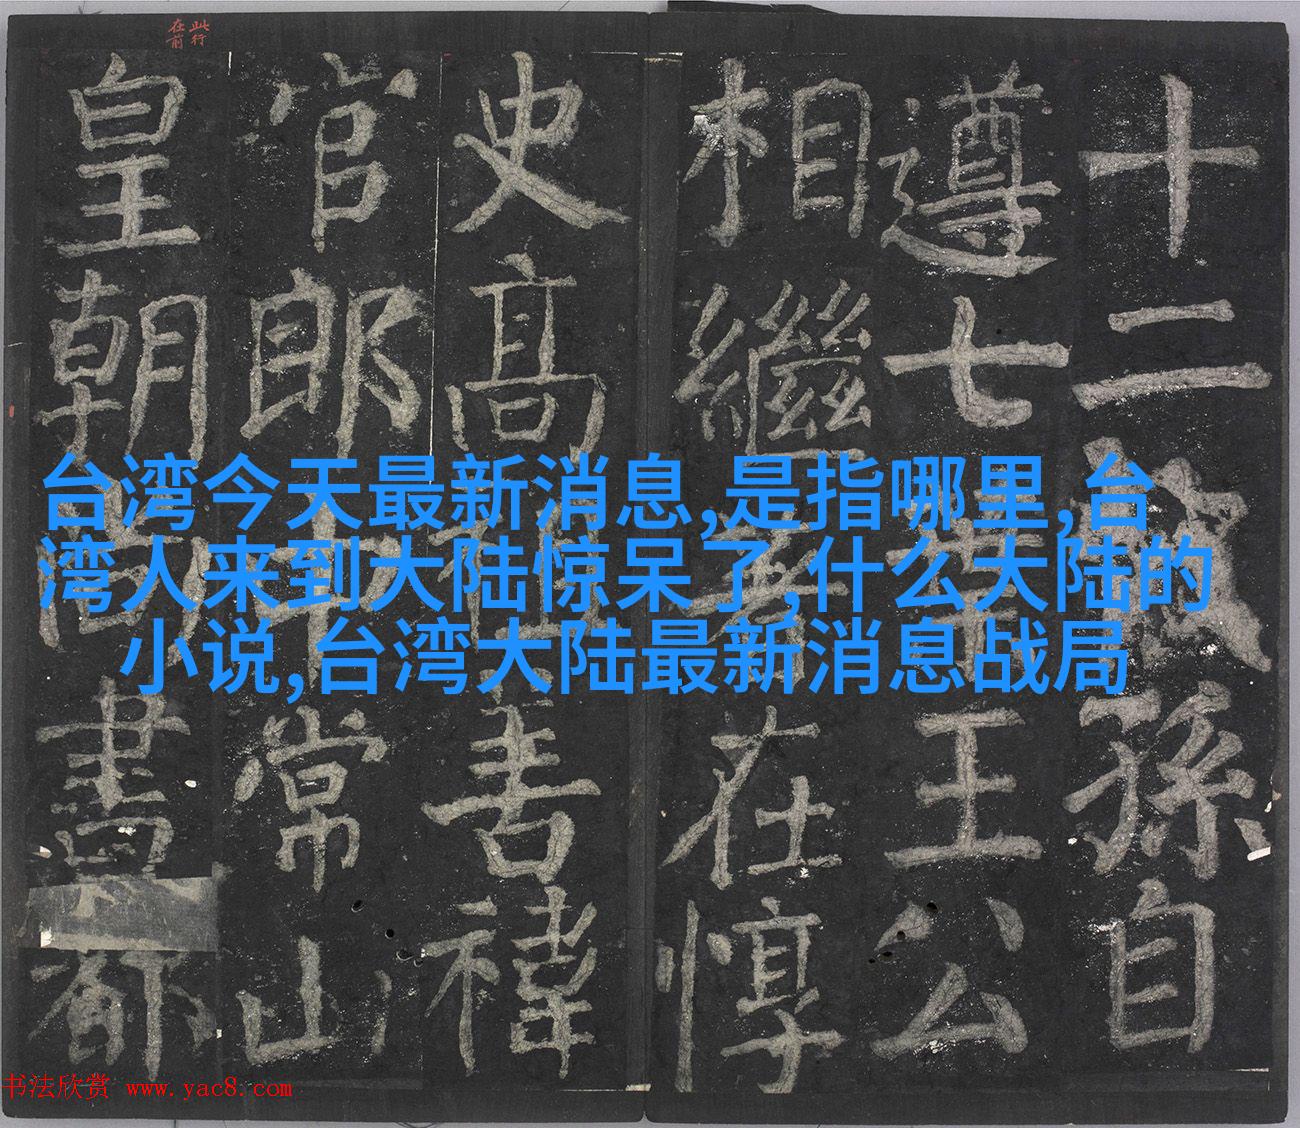 此行
在前
十二孫自
遵七王公
相繼在惇
史高祖善禕
官郎中常山
皇朝尚書都
台湾今天最新消息,是指哪里,台
湾人来到大陆惊呆了,什么大陆的
小说,台湾大陆最新消息战局
书法欣赏 www.yac8.com